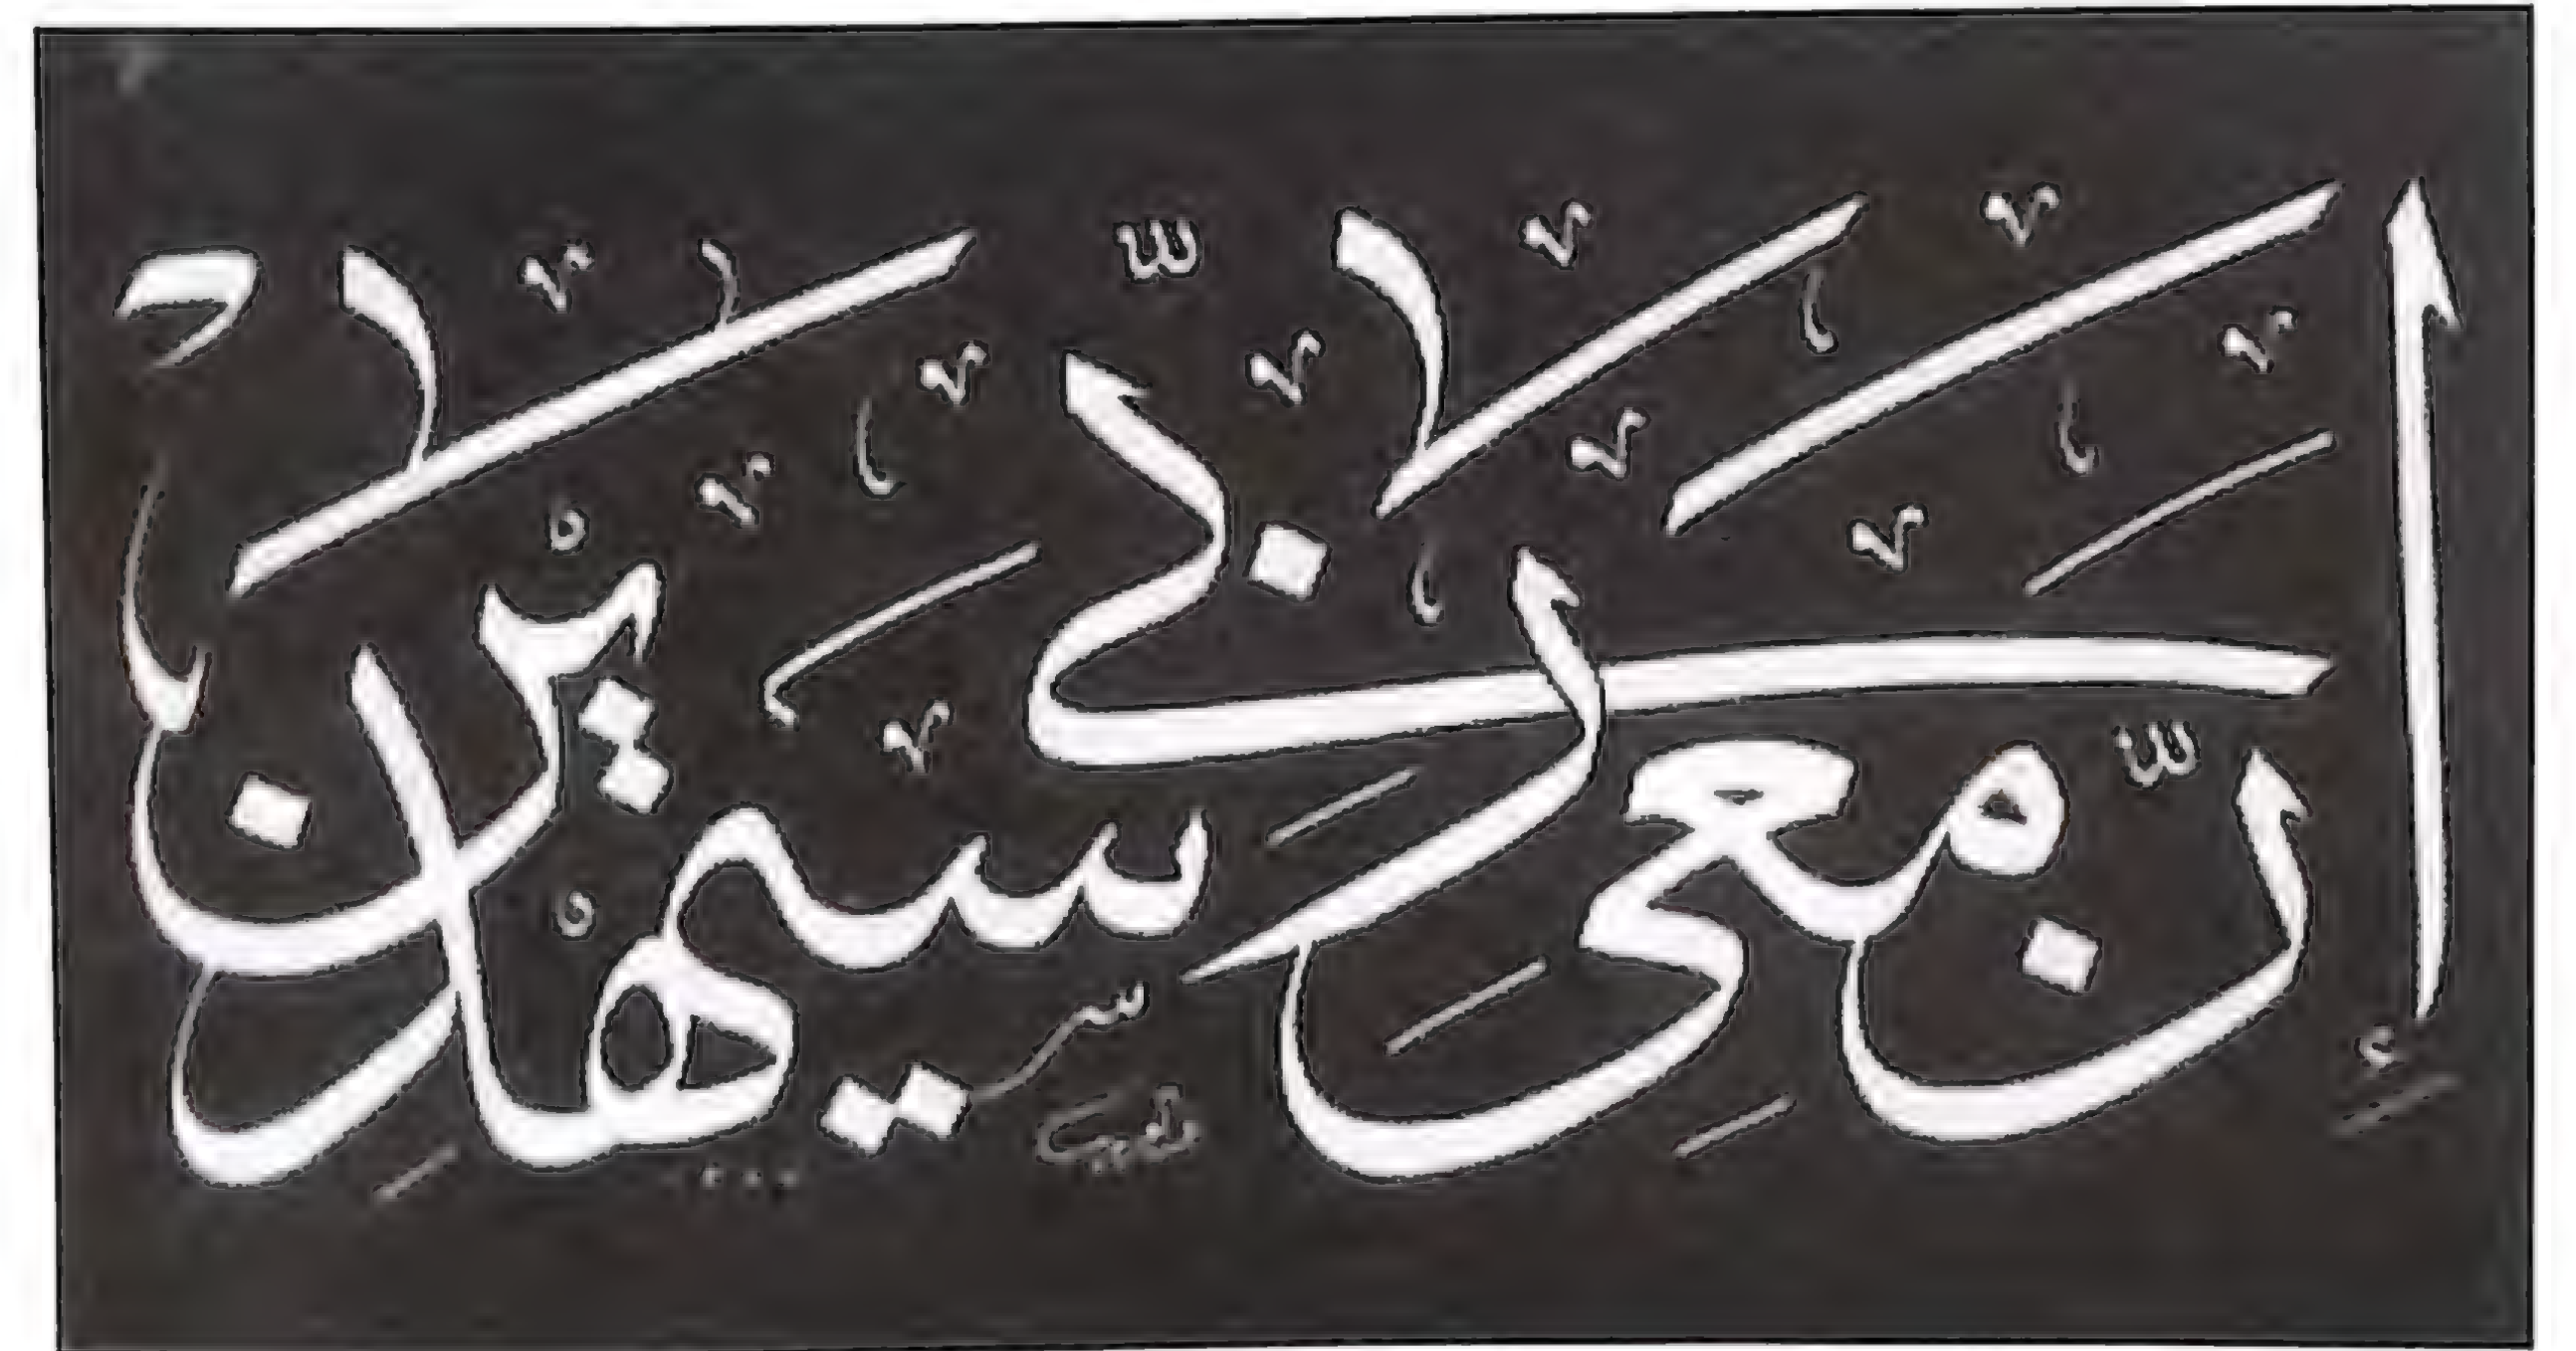 إن معى ربى سيهدين